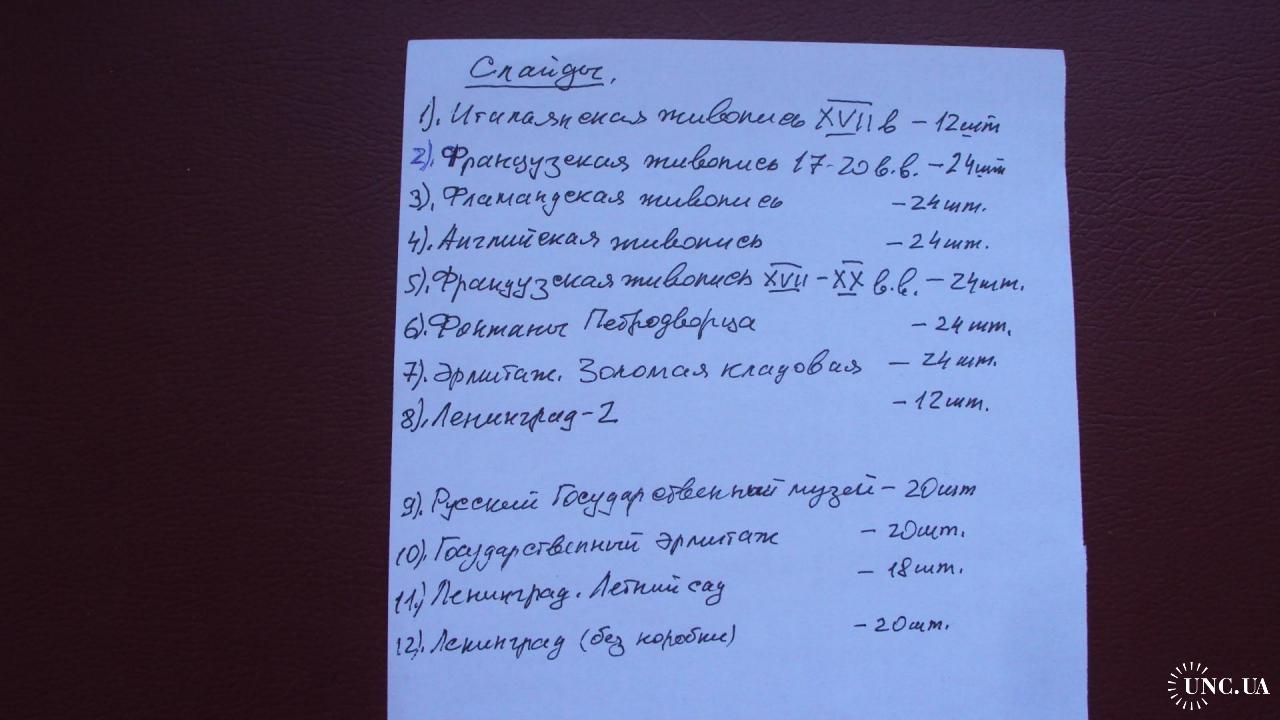 Слайды.
1). Итальянская живопись XVII в - 12шт
2). Французская живопись 17-20 в.в. - 24шт
3). Фламандская живопись - 24шт.
4). Английская живопись - 24шт.
5). Французская живопись XVII - XX в.в. - 24шт.
6). Фонтаны Петродворца - 24шт.
7). Эрмитаж. Золотая кладовая - 24шт.
8). Ленинград-2 - 12шт.
9). Русский Государственный музей - 20шт
10). Государственный Эрмитаж - 20шт.
11). Ленинград. Летний сад - 18шт.
12). Ленинград (без коробки) - 20шт.
UNC.UA